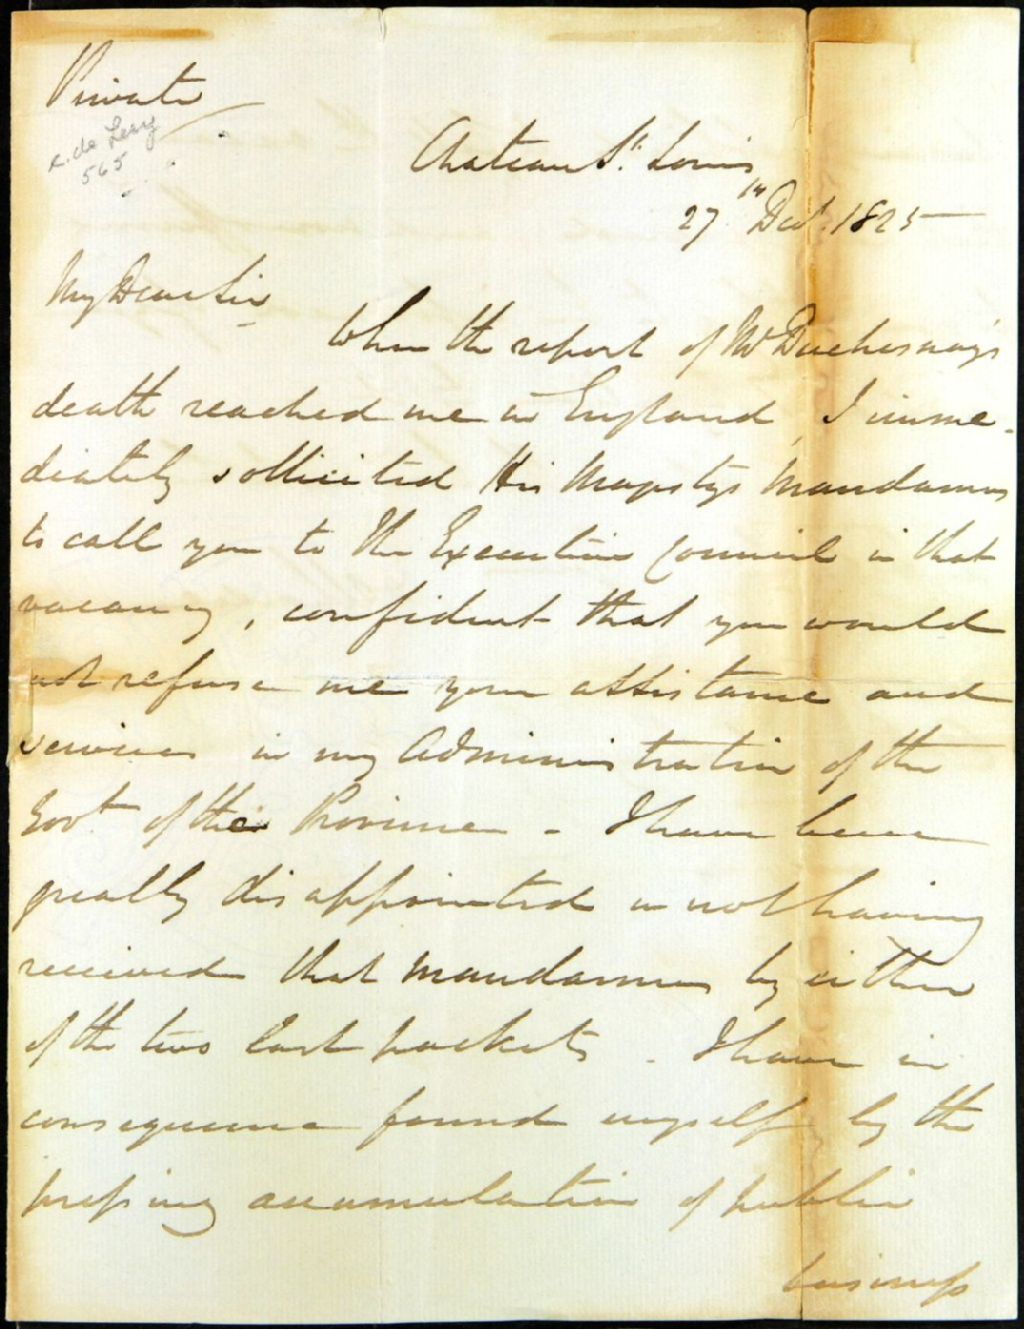 Private
R. de Lery
565
Chateau St. Louis
27th Decr. 1825
My Dear Sir
When the report of Mr Duchesnay's
death reached me in England, I imme-
diately sollicited His Majestys Mandamus
to call you to the Executive Council in that
vacancy, confident that you would
not refuse me your assistance and
services in my Administration of the
Govt. of the Province - I have been
greatly disappointed in not having
received that Mandamus by either
of the two last packets - I have in
consequence found myself by the
pressing accumulation of public
business